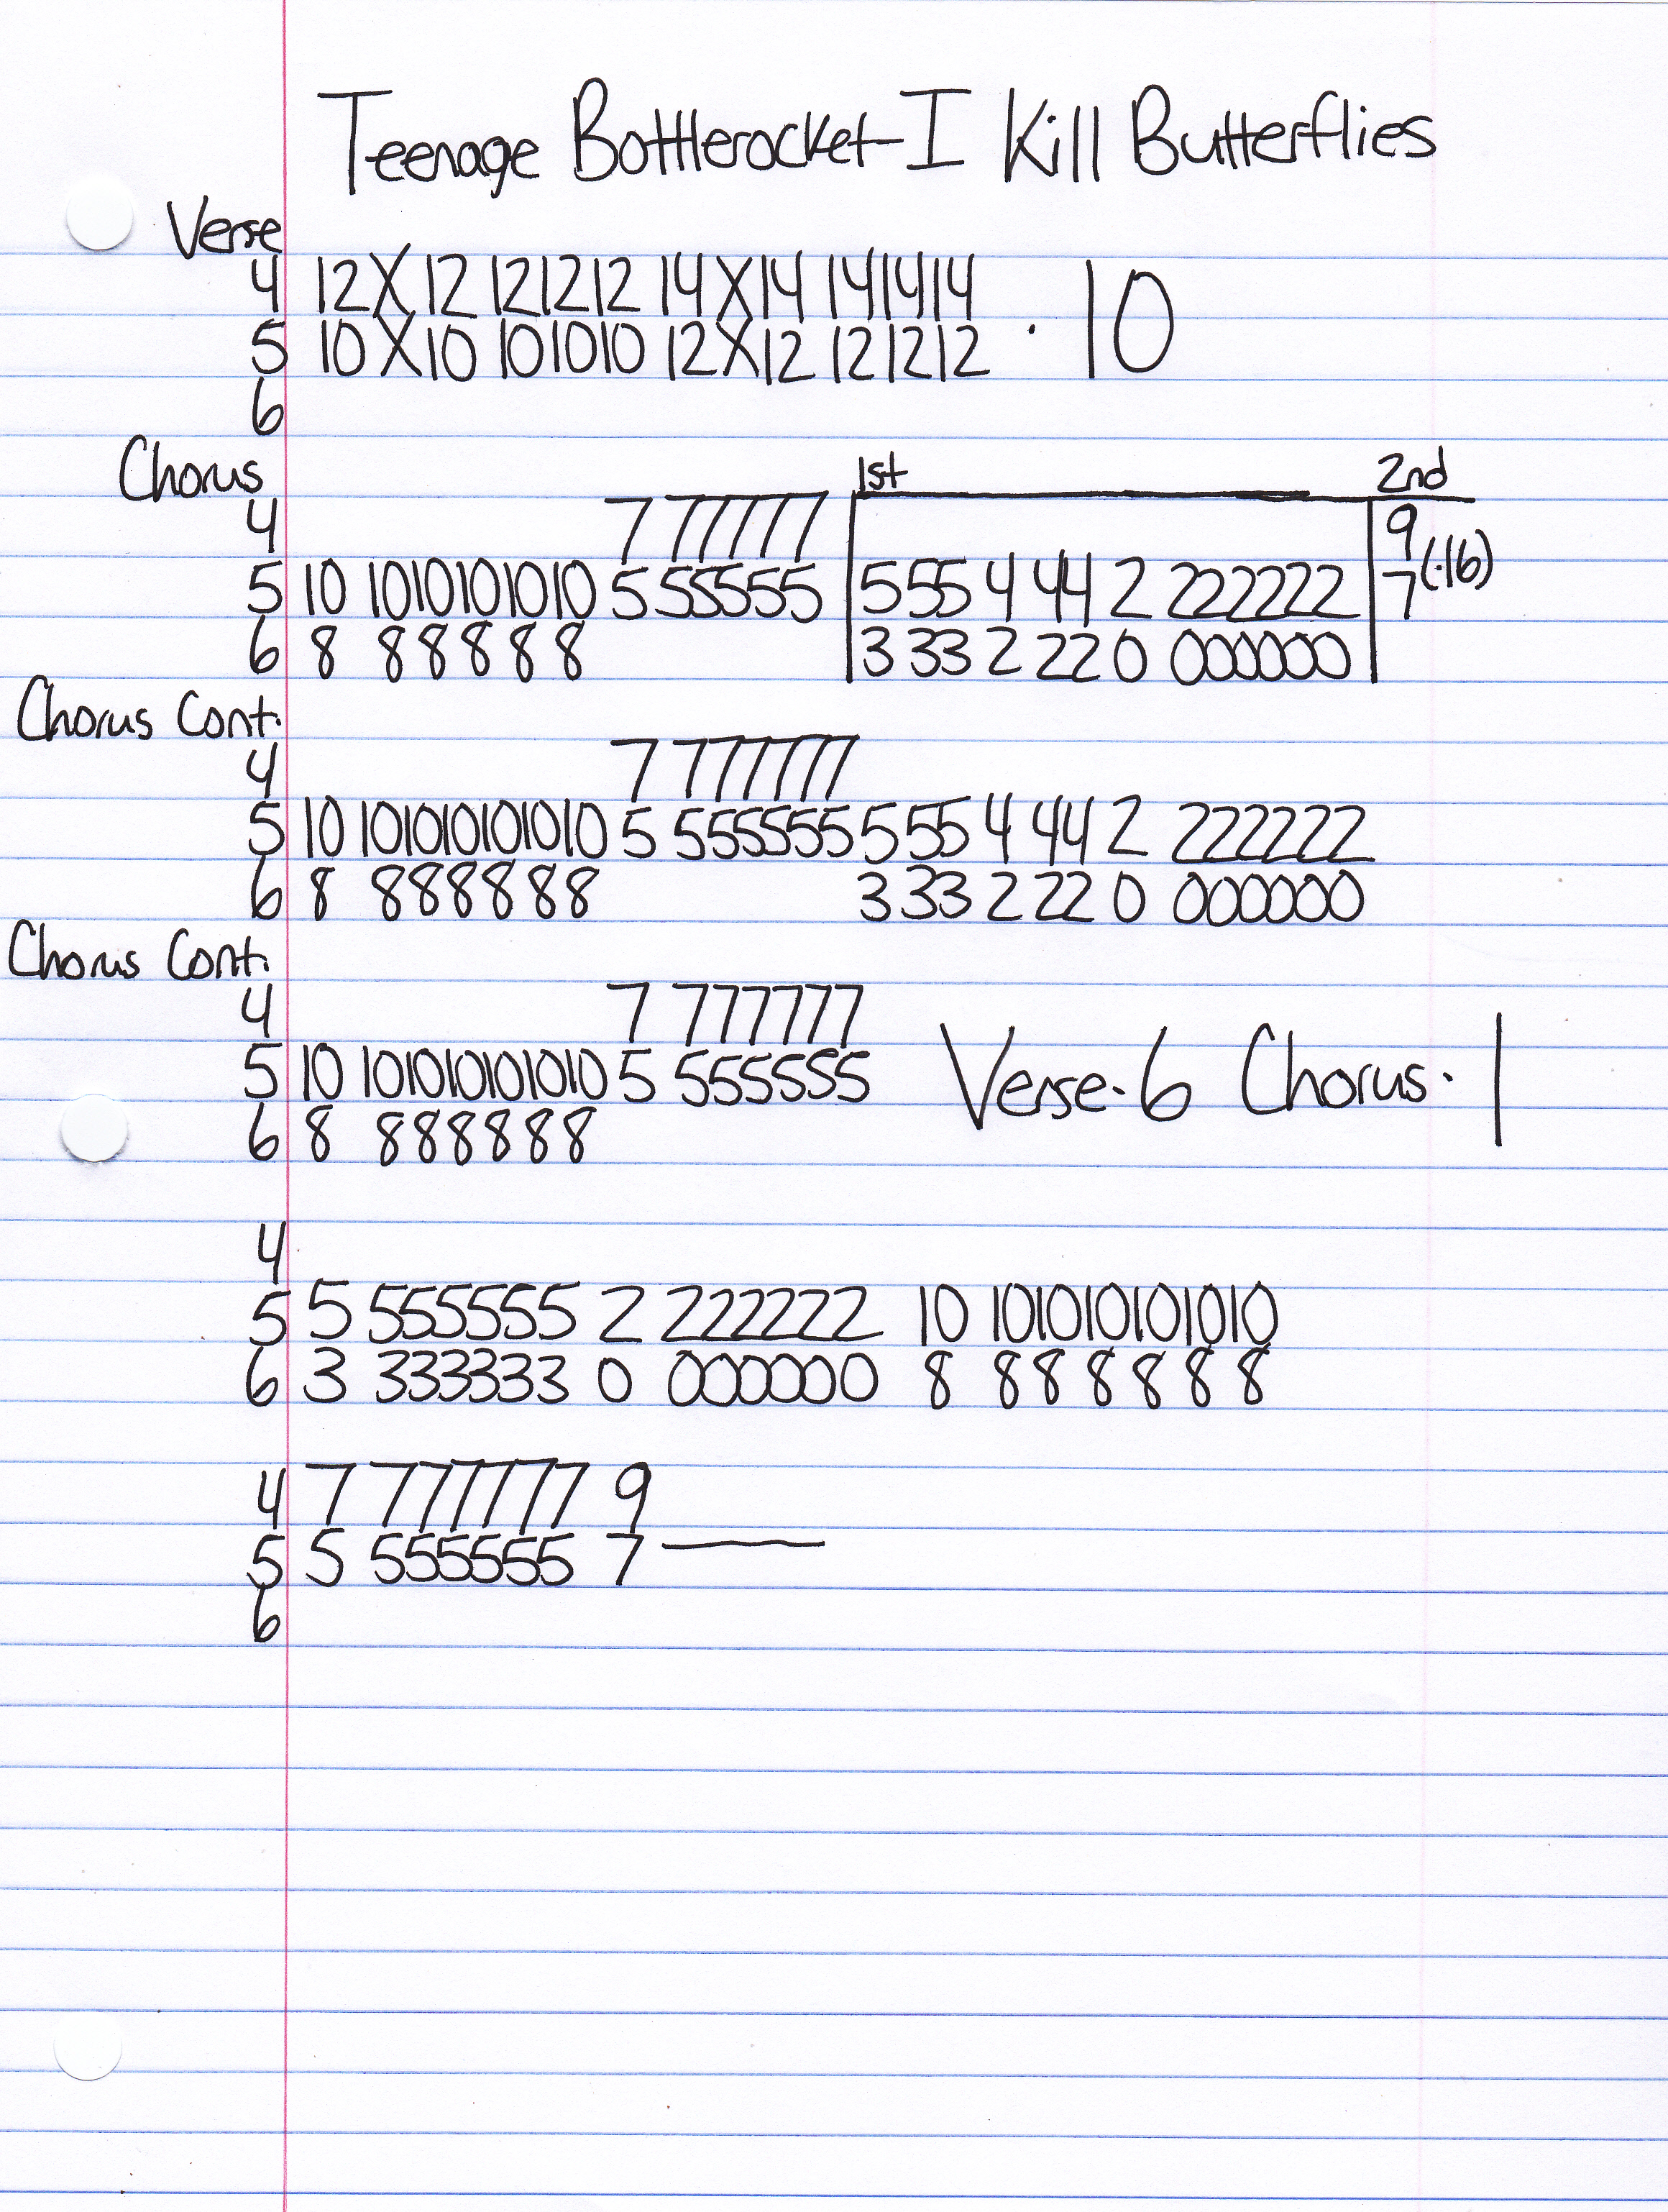 Teenage Bottlerocket-I Kill Butterflies
Verse
4 12 X 12 12 12 12 14 X 14 14 14 14
5 10 X 10 10 10 10 12 X 12 12 12 12 · 10
6
Chorus 1st 2nd
4 7 7 7 7 7 7 9
5 10 10 10 10 10 10 5 5 5 5 5 5 5 5 5 4 4 4 2 2 2 2 2 2 2 7 (·16)
6 8 8 8 8 8 8 3 3 3 2 2 2 0 0 0 0 0 0 0
Chorus Cont.
4 7 7 7 7 7 7 7
5 10 10 10 10 10 10 10 5 5 5 5 5 5 5 5 5 5 4 4 4 2 2 2 2 2 2 2
6 8 8 8 8 8 8 8 3 3 3 2 2 2 0 0 0 0 0 0 0
Chorus Cont.
4 7 7 7 7 7 7 7
5 10 10 10 10 10 10 10 5 5 5 5 5 5 5 Verse·6 Chorus·1
6 8 8 8 8 8 8 8
4
5 5 5 5 5 5 5 5 2 2 2 2 2 2 2 10 10 10 10 10 10 10
6 3 3 3 3 3 3 3 0 0 0 0 0 0 0 8 8 8 8 8 8 8
4 7 7 7 7 7 7 7 9
5 5 5 5 5 5 5 5 7 —
6